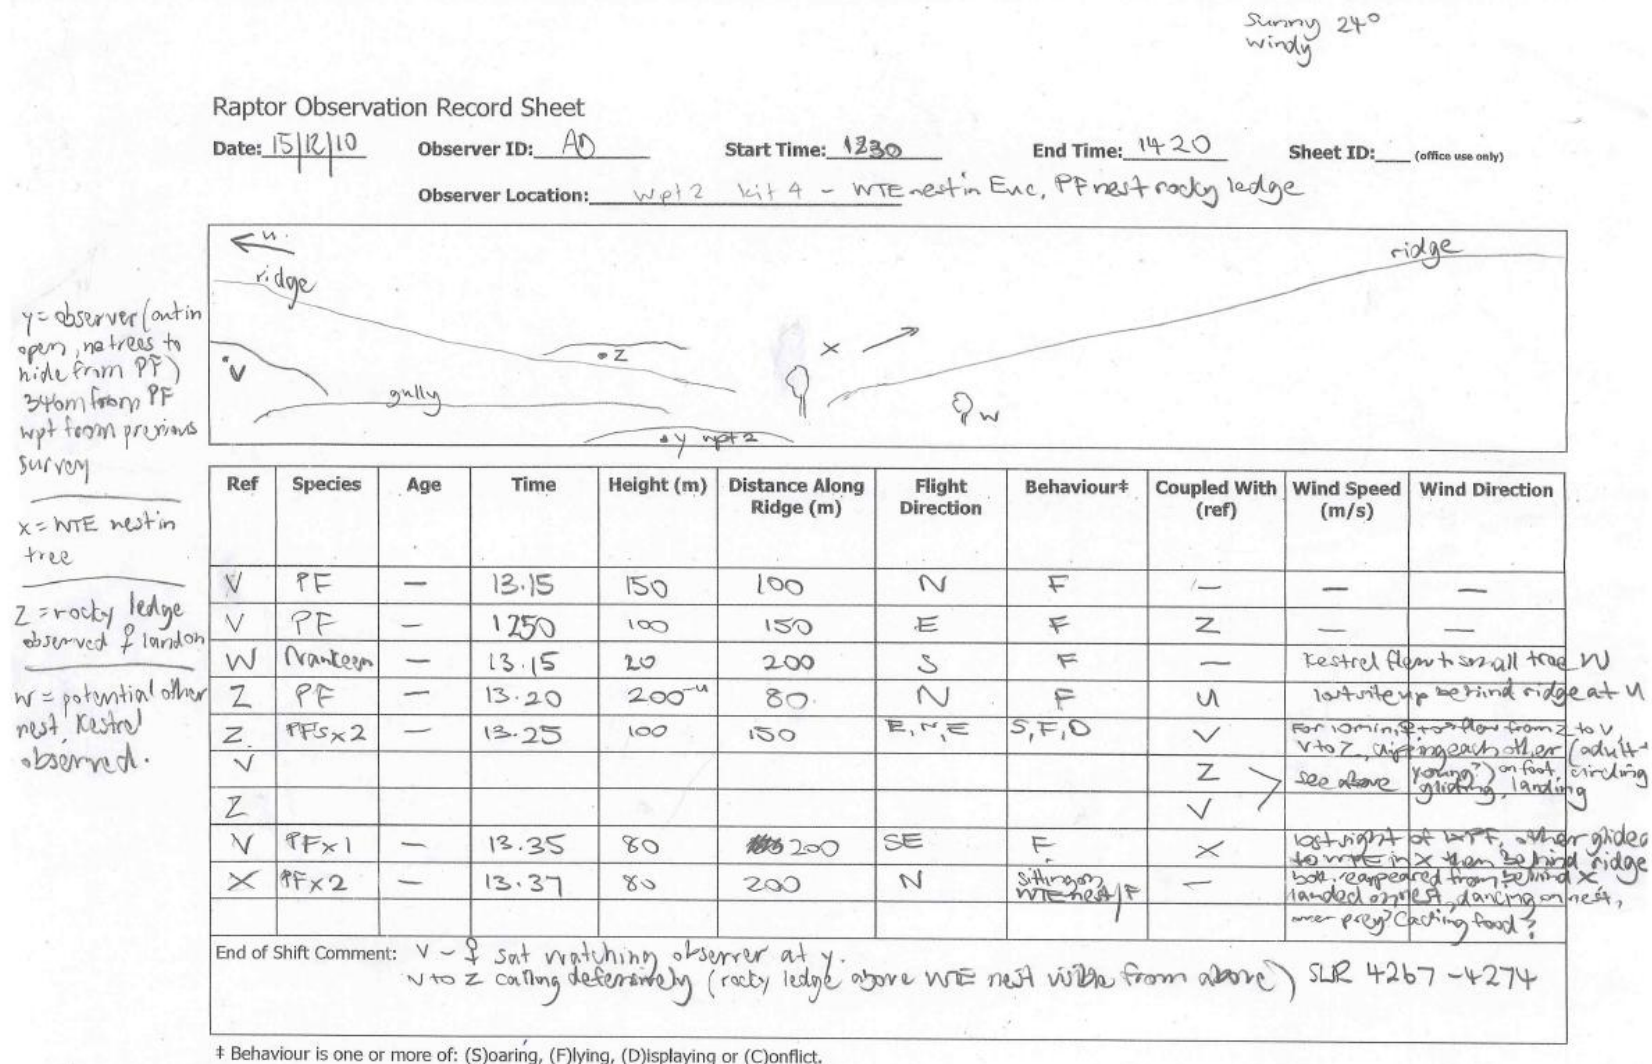 Sunny 24°
windy
Raptor Observation Record Sheet
Date: 15/12/10 Observer ID: AD Start Time: 1230 End Time: 14 20 Sheet ID: (office use only)
Observer Location: wpt 2 kit 4 - WTE nest in Euc, PF nest rocky ledge
u
ridge
ridge
x
z
v
gully
w
y wpt 2
y = observer (out in
open, no trees to
hide from PF)
346m from PF
wpt from previous
survey
x = WTE nest in
tree
Z = rocky ledge
observed ♀ land on
w = potential other
nest, Kestrel
observed.
Ref Species Age Time Height (m) Distance Along Ridge (m) Flight Direction Behaviour‡ Coupled With (ref) Wind Speed (m/s) Wind Direction
V PF — 13.15 150 100 N F — — —
V PF — 1250 100 150 E F Z — —
W Nankeen — 13.15 20 200 S F — Kestrel flew to small tree W
Z PF — 13.20 200 -u 80 N F U lost site up behind ridge at u
Z PFs x 2 — 13.25 100 150 E, N, E S, F, D V For 10 min, flew from Z to V,
V to Z, each other (adult -
V Z see above young?) on foot, circling
gliding, landing
Z V
V PF x 1 — 13.35 80 200 SE F X lost sight of PF, other glides
to WTE in X then behind ridge
X PF x 2 — 13.37 80 200 N sitting on WTE nest / F — both reappeared from behind X,
landed on nest, dancing on nest,
over prey? food?
End of Shift Comment: V - ♀ sat watching observer at y.
V to Z calling defensively (rocky ledge above WTE nest visible from above) SLR 4267 - 4274
‡ Behaviour is one or more of: (S)oaring, (F)lying, (D)isplaying or (C)onflict.